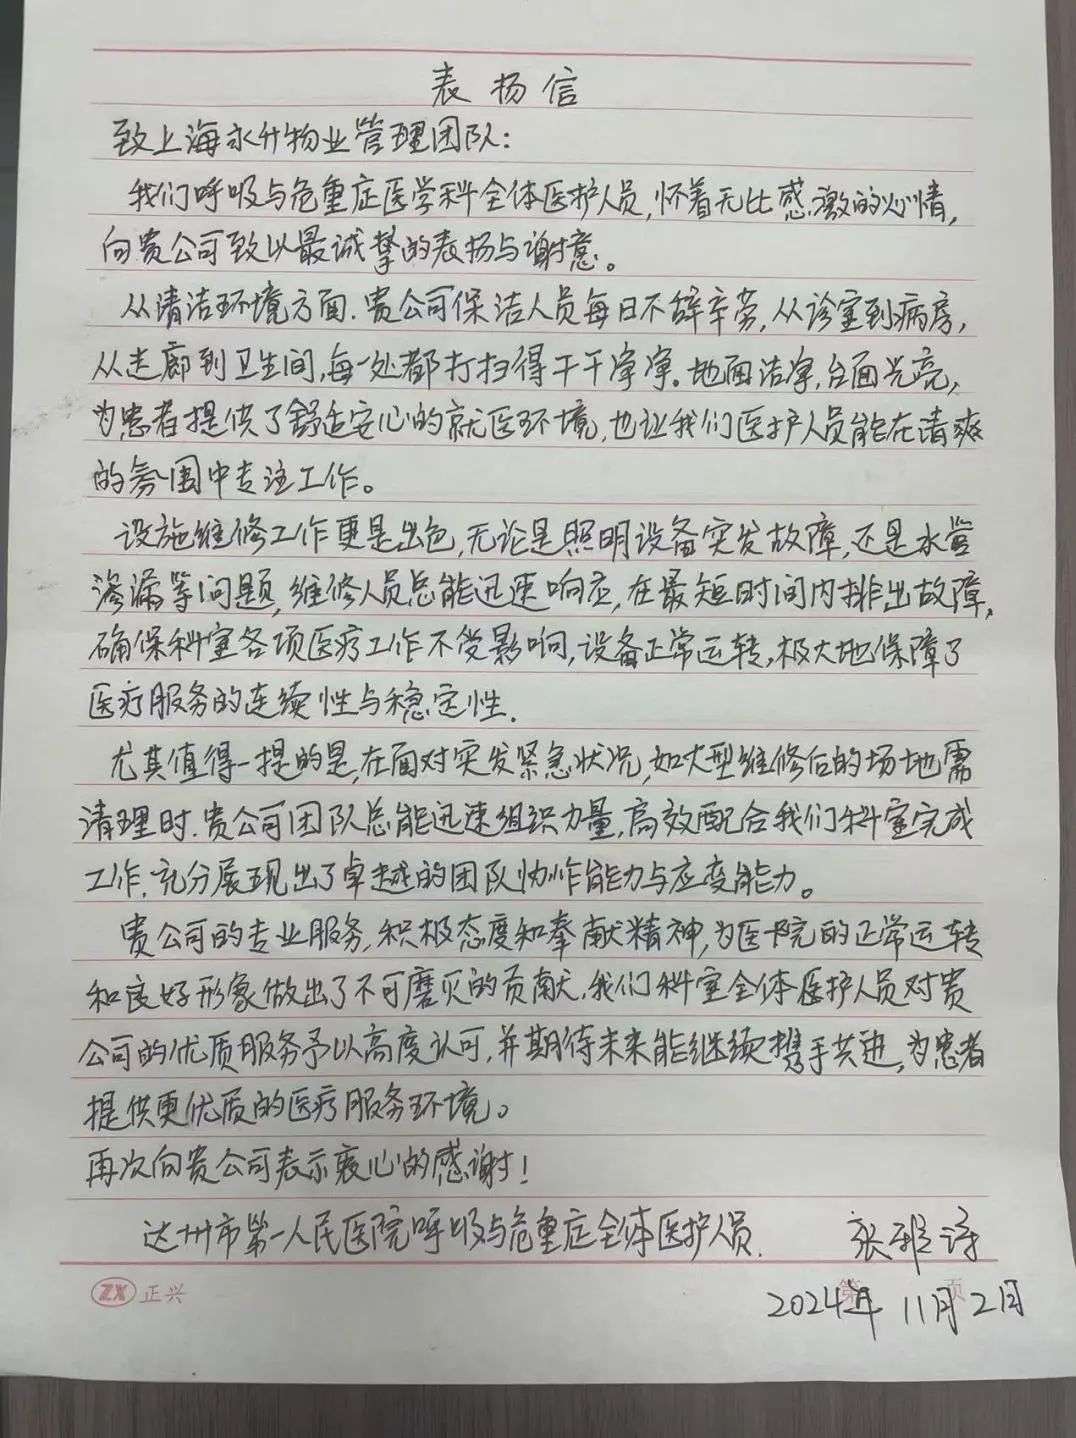 表扬信
致上海永升物业管理团队:
我们呼吸与危重症医学科全体医护人员,怀着无比感激的心情,
向贵公司致以最诚挚的表扬与谢意。
从清洁环境方面.贵公司保洁人员每日不辞辛劳,从诊室到病房,
从走廊到卫生间,每一处都打扫得干干净净。地面洁净,台面光亮,
为患者提供了舒适安心的就医环境,也让我们医护人员能在清爽
的氛围中专注工作。
设施维修工作更是出色,无论是照明设备突发故障,还是水管
渗漏等问题,维修人员总能迅速响应,在最短时间内排出故障,
确保科室各项医疗工作不受影响,设备正常运转,极大地保障了
医疗服务的连续性与稳定性.
尤其值得一提的是,在面对突发紧急状况,如大型维修后的场地需
清理时.贵公司团队总能迅速组织力量,高效配合我们科室完成
工作.充分展现出了卓越的团队协作能力与应变能力。
贵公司的专业服务,积极态度和奉献精神,为医院的正常运转
和良好形象做出了不可磨灭的贡献.我们科室全体医护人员对贵
公司的优质服务予以高度认可,并期待未来能继续携手共进,为患者
提供更优质的医疗服务环境。
再次向贵公司表示衷心的感谢!
达州市第一人民医院呼吸与危重症全体医护人员. 张雅诗
ZX 正兴 第 页
2024年11月2日